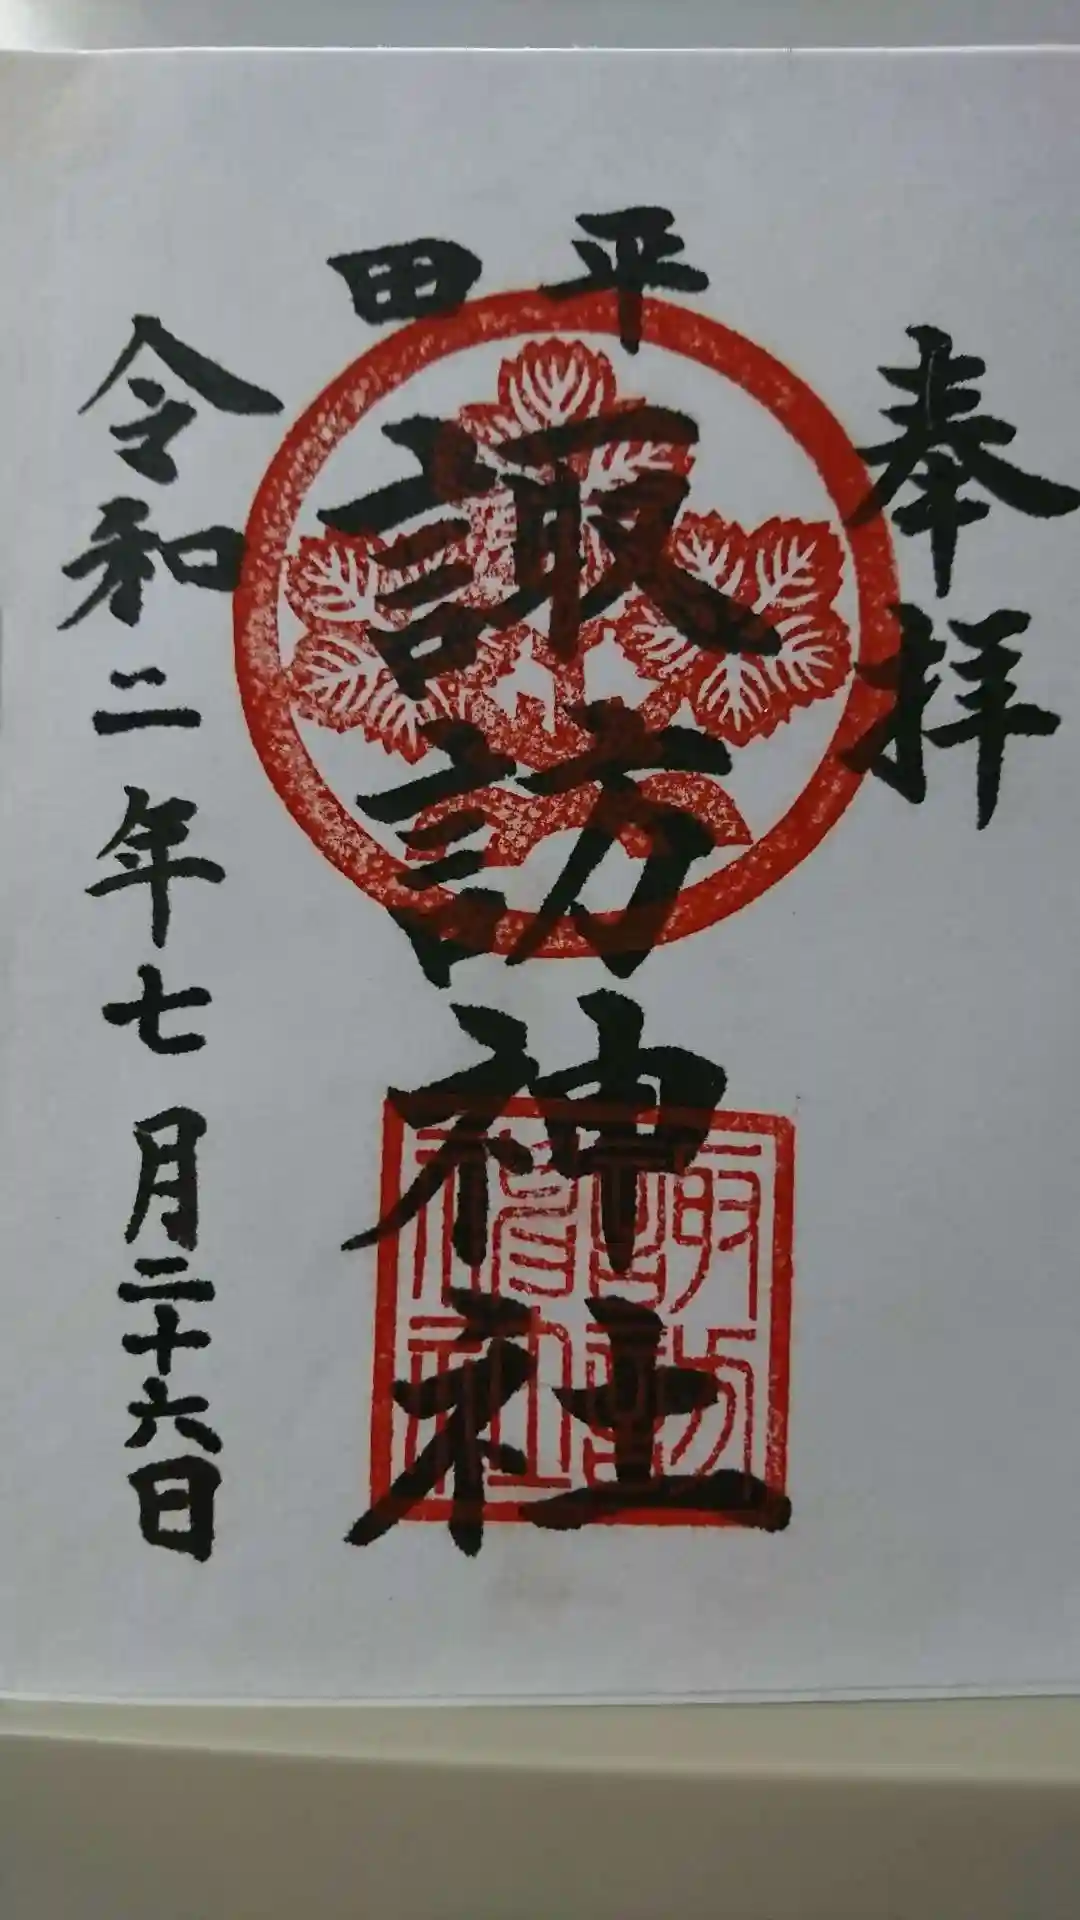 奉拝
平田
諏訪神社
諏訪神社
令和二年七月二十六日